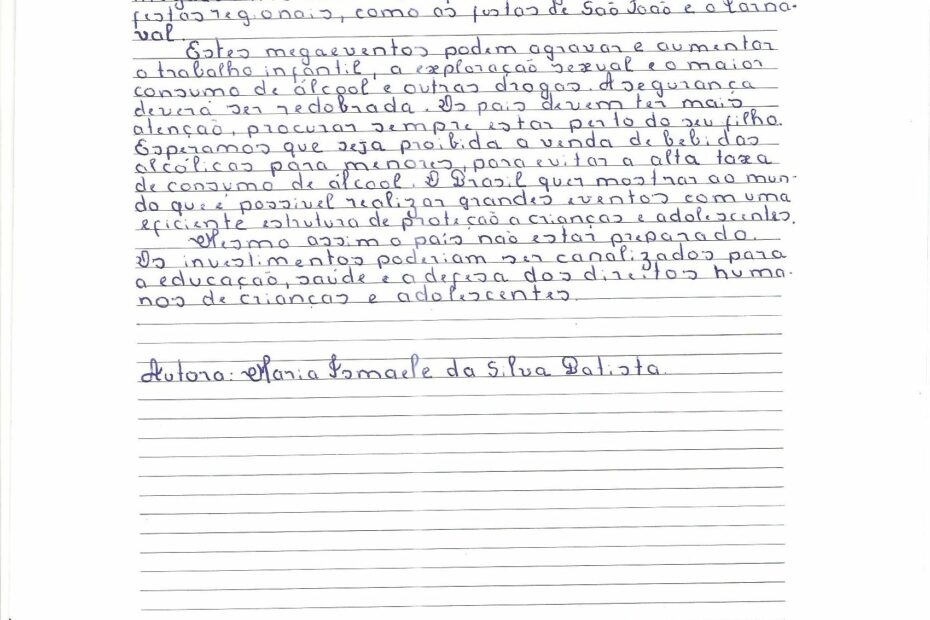 festas regionais, como as festas de São João e o Carna-
val.
Estes megaeventos podem agravar e aumentar
o trabalho infantil, a exploração sexual e o maior
consumo de álcool e outras drogas. A segurança
deverá ser redobrada. Os pais devem ter mais
atenção, procurar sempre estar perto do seu filho.
Esperamos que seja proibida a venda de bebidas
alcólicas para menores, para evitar a alta taxa
de consumo de álcool. O Brasil quer mostrar ao mun-
do que é possível realizar grandes eventos com uma
eficiente estrutura de proteção a crianças e adolescentes.
Mesmo assim o país não estar preparado.
Os investimentos poderiam ser canalizados para
a educação, saúde e a defesa dos direitos huma-
nos de crianças e adolescentes.
Autora: Maria Ismaele da Silva Batista.